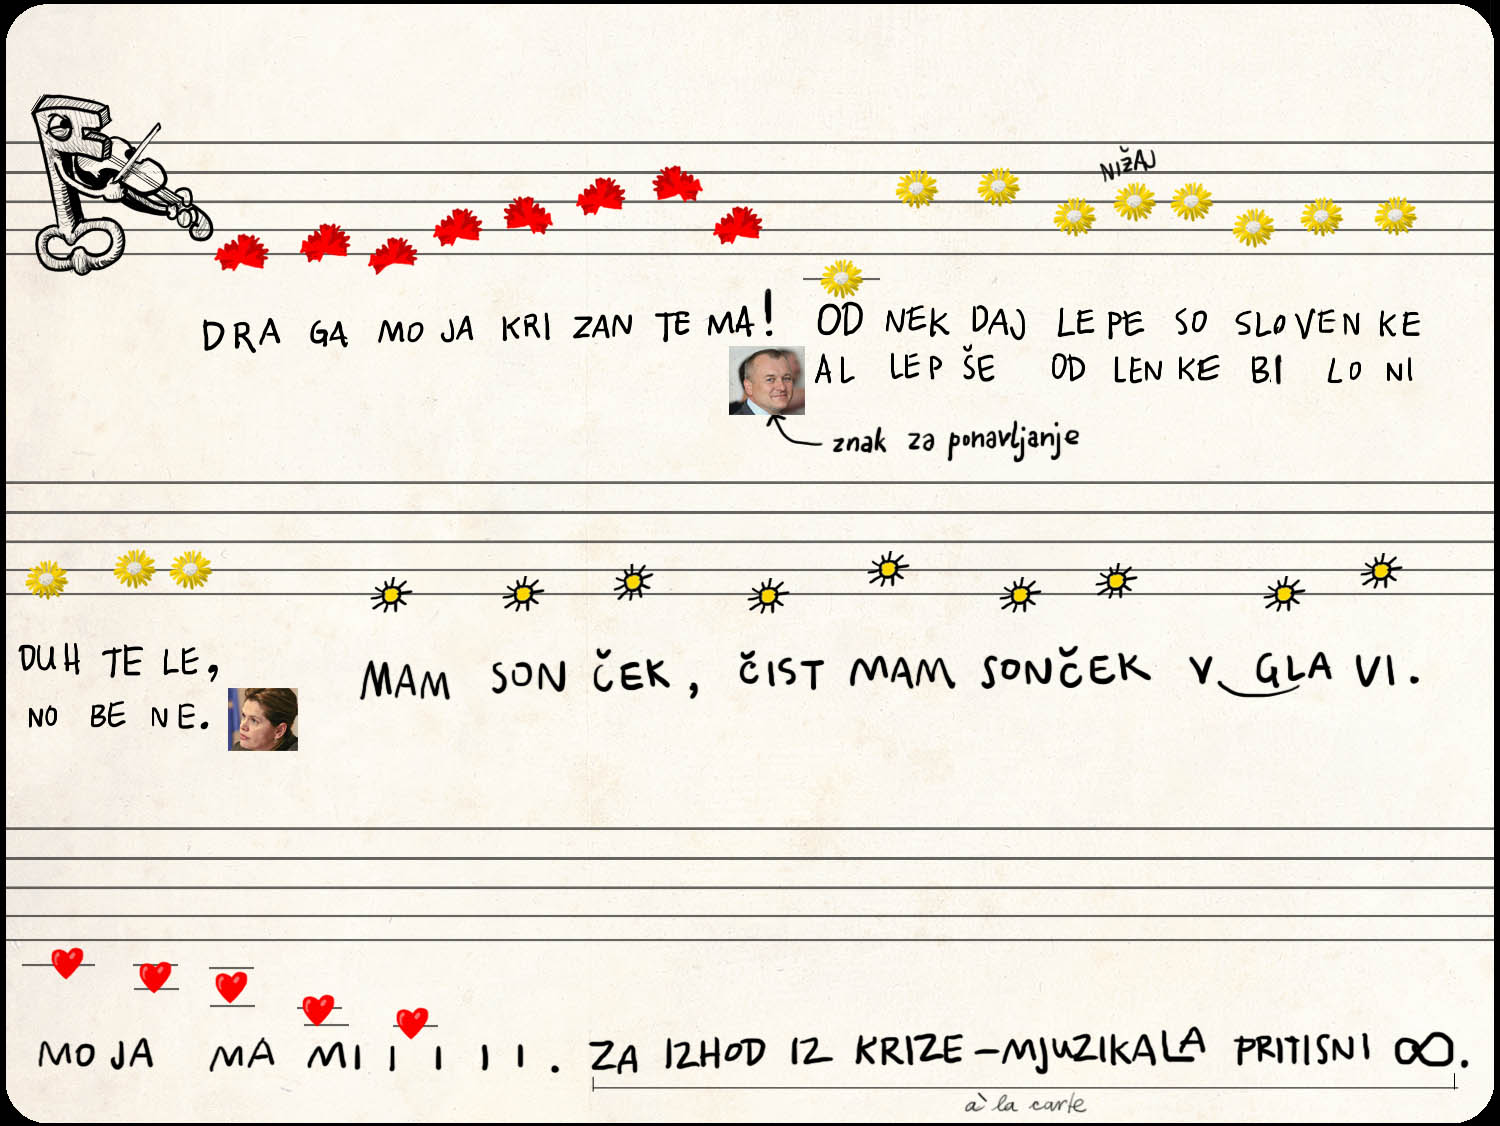 NIŽAJ
DRA GA MO JA KRI ZAN TE MA! OD NEK DAJ LE PE SO SLOVEN KE
AL LEP ŠE OD LEN KE BI LO NI
znak za ponavljanje
DUH TE LE,
NO BE NE.
MAM SON ČEK, ČIST MAM SONČEK V GLA VI.
MO JA MA MI I I I I. ZA IZHOD IZ KRIZE-MJUZIKALA PRITISNI ∞.
a` la carte